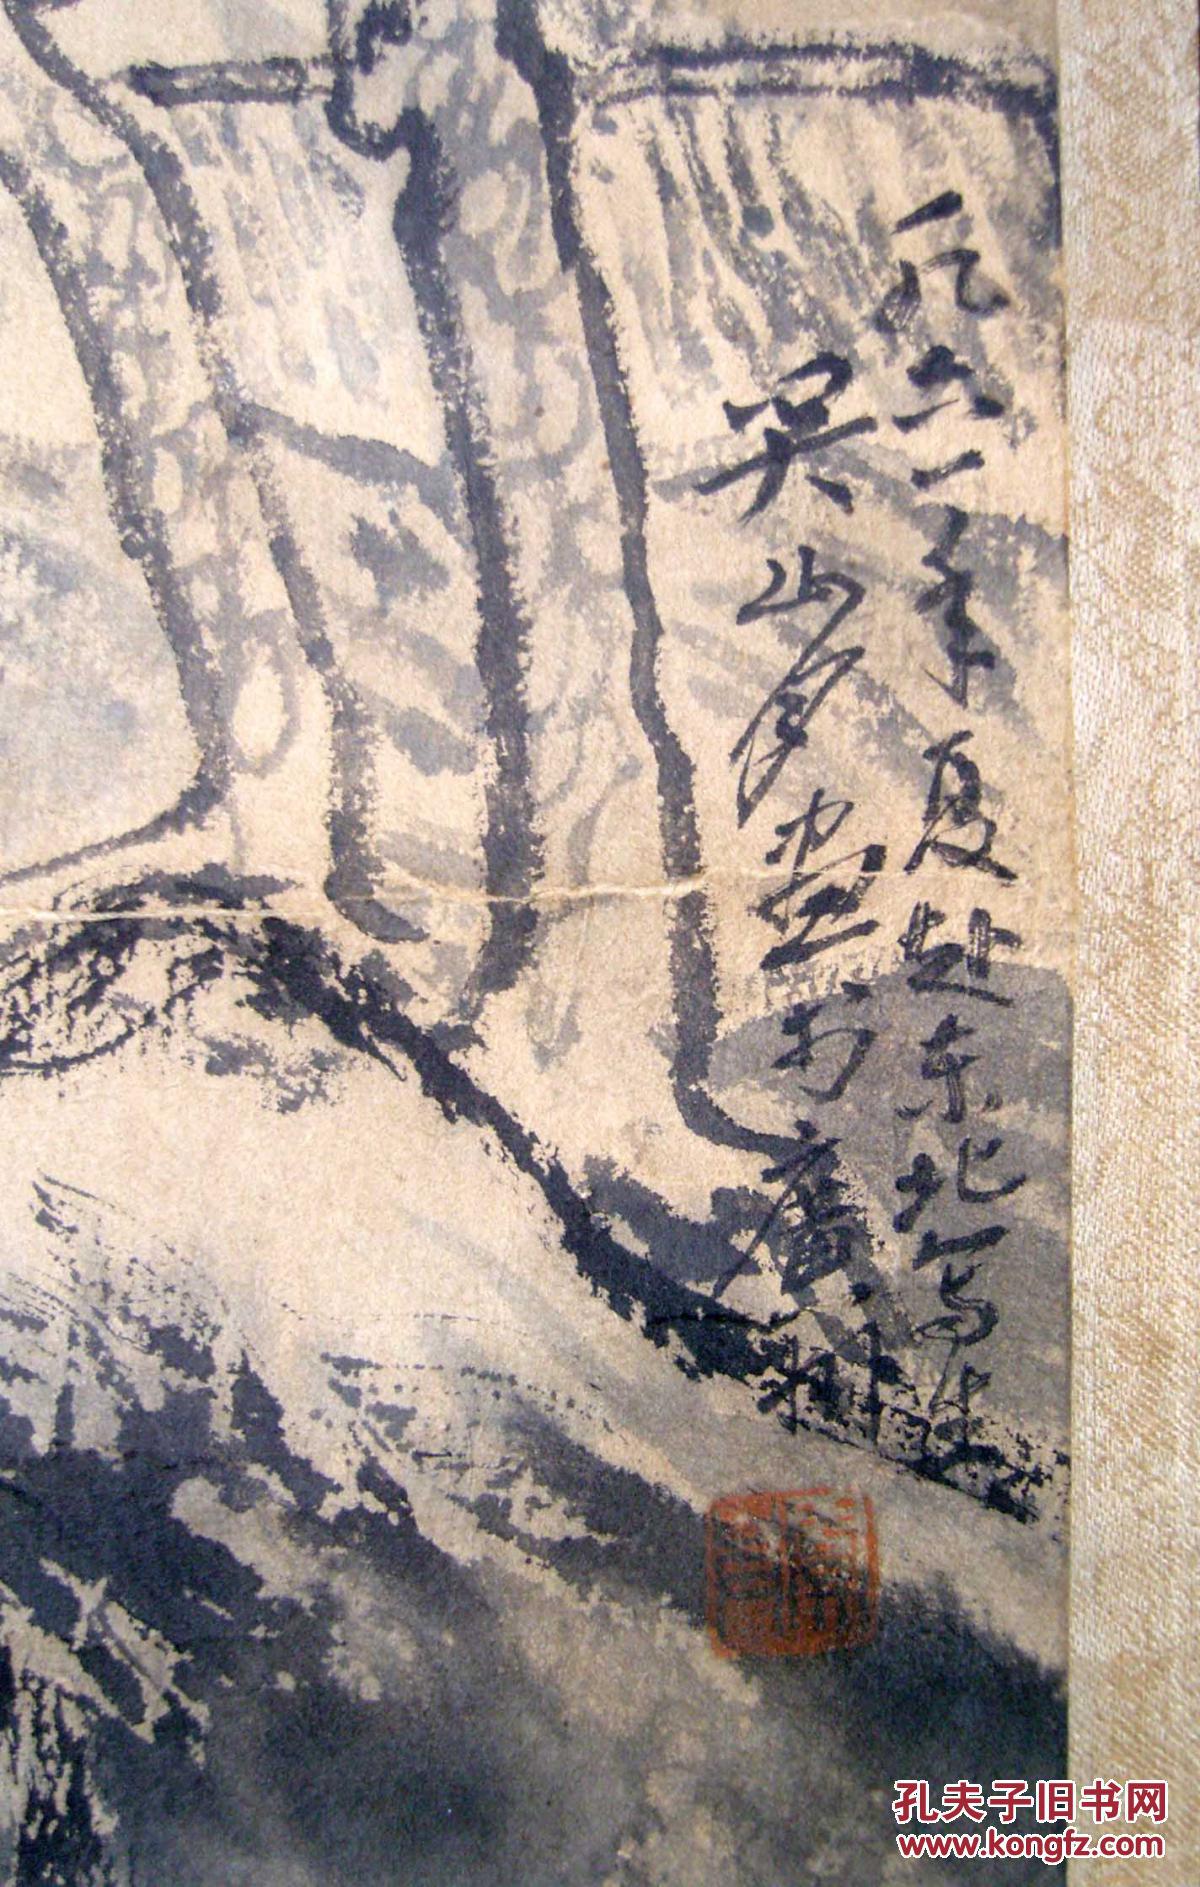 一九六一年夏赴东北写生
吴山月画于廣州
孔夫子旧书网
www.kongfz.com